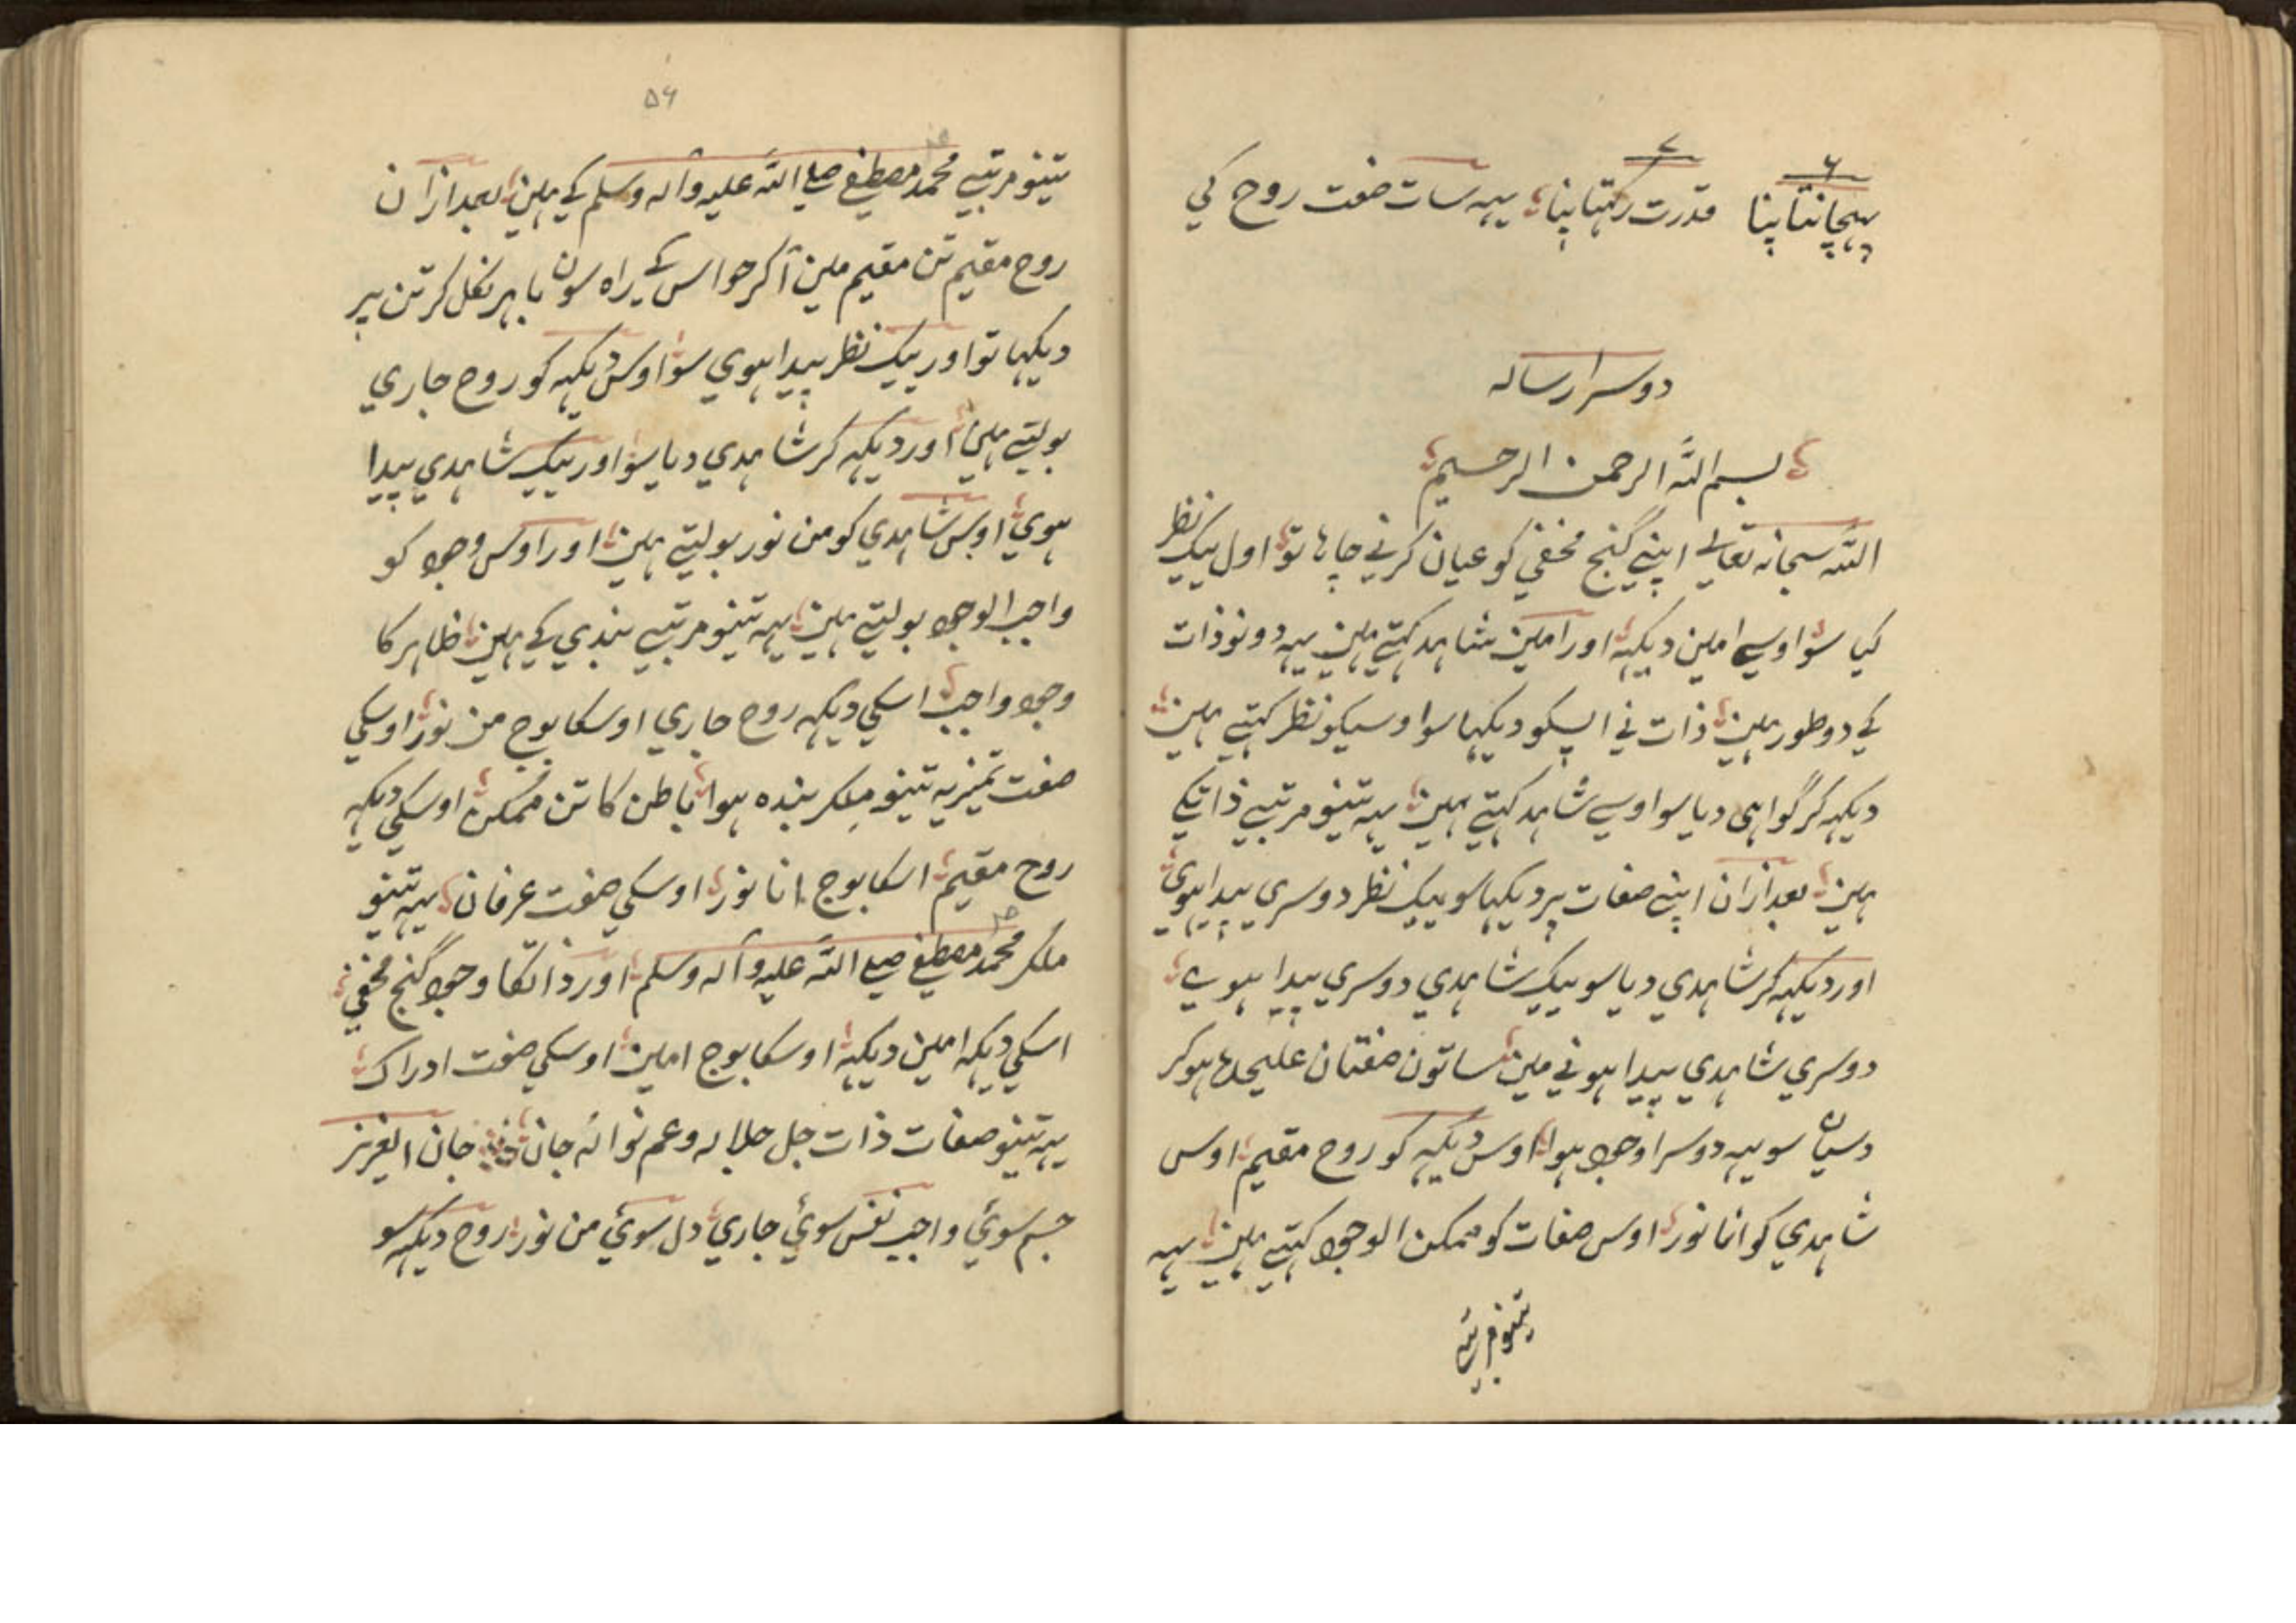 ۶ ۷
پہچانتا پنا قدرت رکہتا پنا یہہ سات صفت روح کی
دوسرا رسالہ
بسم اللہ الرحمن الرحیم
اللہ سبحانہ تعالی اپنے گنج مخفی کو عیان کرنے چاہا تو اول یک نظر
کیا سو اوسے امین دیکہہ اور امین شاہد کہتے ہین یہہ دونو ذات
کے دو طور ہین ذات نے اپسکو دیکہا سو اوسیکو نظر کہتے ہین
دیکہہ کر گواہی دیا سو اوسے شاہد کہتے ہین یہہ تینو مرتبے ذاتکے
ہین بعد ازان اپنے صفات پر دیکہا سو یک نظر دوسری پیدا ہوی
اور دیکہہ کر شاہدی دیا سو یک شاہدی دوسری پیدا ہوے
دوسری شاہدی پیدا ہونے مین ساتون صفتان علیحدہ ہو کر
دسیان سو یہہ دوسرا وجود ہوا اوس دیکہہ کو روح مقیم اوس
شاہدی کو انا نور اوس صفات کو ممکن الوجود کہتے ہین یہہ
تینو مرتبے
۵۶
تینو مرتبے محمد مصطفے صلے اللہ علیہ وآلہ وسلم کے ہین بعد ازان
روح مقیم تن مقیم مین آ کر حواس کے راہ سون باہر نکل کر تن پر
دیکہا تو اور یک نظر پیدا ہوی سو اوس دیکہہ کو روح جاری
بولتے ہین اور دیکہہ کر شاہدی دیا سو اور یک شاہدی پیدا
ہوی اوس شاہدی کو من نور بولتے ہین اور اوس وجود کو
واجب الوجود بولتے ہین یہہ تینو مرتبے بندی کے ہین ظاہر کا
وجود واجب اسکی دیکہہ روح جاری اوسکا بوج من نور اوسکی
صفت تمیز یہ تینو ملکر بندہ ہوا باطن کا تن ممکن اوسکی دیکہہ
روح مقیم اسکا بوج انا نور اوسکی صفت عرفان یہہ تینو
ملکر محمد مصطفے صلے اللہ علیہ وآلہ وسلم اور ذاتکا وجود گنج مخفی
اسکی دیکہہ امین دیکہہ اوسکا بوج امین اوسکی صفت ادراک
یہہ تینو صفات ذات جل جلالہ وعم نوالہ جان جان ایعزیز
جسم سوئی واجب نفس سوئی جاری دل سوئی من نور روح دیکہہ سو